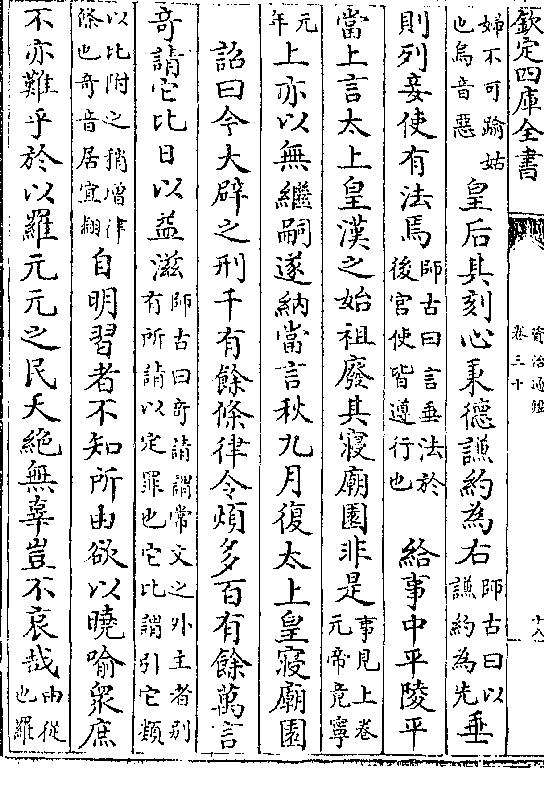 欽定四庫全書
資治通鑑
卷三十
十八
婦不可踰姑
也烏音惡
皇后其刻心秉德謙約為右
師古曰以
謙約為先
垂
則列妾使有法焉
師古曰言垂法於
後宮使皆遵行也
給事中平陵平
當上言太上皇漢之始祖廢其寢廟園非是
事見上卷
元帝竟寧
元
年
上亦以無繼嗣遂納當言秋九月復太上皇寢廟園
詔曰今大辟之刑千有餘條律令煩多百有餘萬言
奇請它比日以益滋
師古曰奇請謂常文之外主者别
有所請以定罪也它比謂引它類
以比附之稍增律
條也奇音居宜翻
自明習者不知所由欲以曉喻衆庶
不亦難乎於以羅元元之民夭絶無辜豈不哀哉
由從
也羅